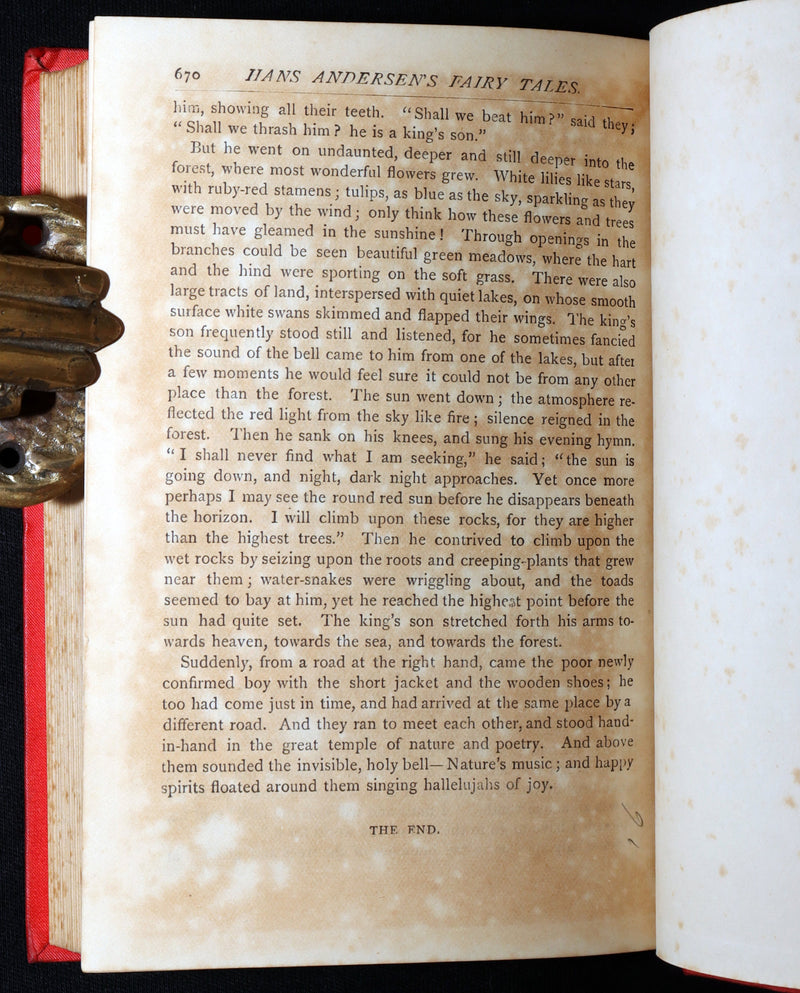 670 HANS ANDERSEN'S FAIRY TALES.
him, showing all their teeth. “Shall we beat him?” said they;
“Shall we thrash him? he is a king's son.”
But he went on undaunted, deeper and still deeper into the
forest, where most wonderful flowers grew. White lilies like stars,
with ruby-red stamens; tulips, as blue as the sky, sparkling as they
were moved by the wind; only think how these flowers and trees
must have gleamed in the sunshine! Through openings in the
branches could be seen beautiful green meadows, where the hart
and the hind were sporting on the soft grass. There were also
large tracts of land, interspersed with quiet lakes, on whose smooth
surface white swans skimmed and flapped their wings. The king's
son frequently stood still and listened, for he sometimes fancied
the sound of the bell came to him from one of the lakes, but after
a few moments he would feel sure it could not be from any other
place than the forest. The sun went down; the atmosphere re-
flected the red light from the sky like fire; silence reigned in the
forest. Then he sank on his knees, and sung his evening hymn.
“I shall never find what I am seeking,” he said; “the sun is
going down, and night, dark night approaches. Yet once more
perhaps I may see the round red sun before he disappears beneath
the horizon. I will climb upon these rocks, for they are higher
than the highest trees.” Then he contrived to climb upon the
wet rocks by seizing upon the roots and creeping-plants that grew
near them; water-snakes were wriggling about, and the toads
seemed to bay at him, yet he reached the highest point before the
sun had quite set. The king's son stretched forth his arms to-
wards heaven, towards the sea, and towards the forest.
Suddenly, from a road at the right hand, came the poor newly
confirmed boy with the short jacket and the wooden shoes; he
too had come just in time, and had arrived at the same place by a
different road. And they ran to meet each other, and stood hand-
in-hand in the great temple of nature and poetry. And above
them sounded the invisible, holy bell—Nature's music; and happy
spirits floated around them singing hallelujahs of joy.
THE END.